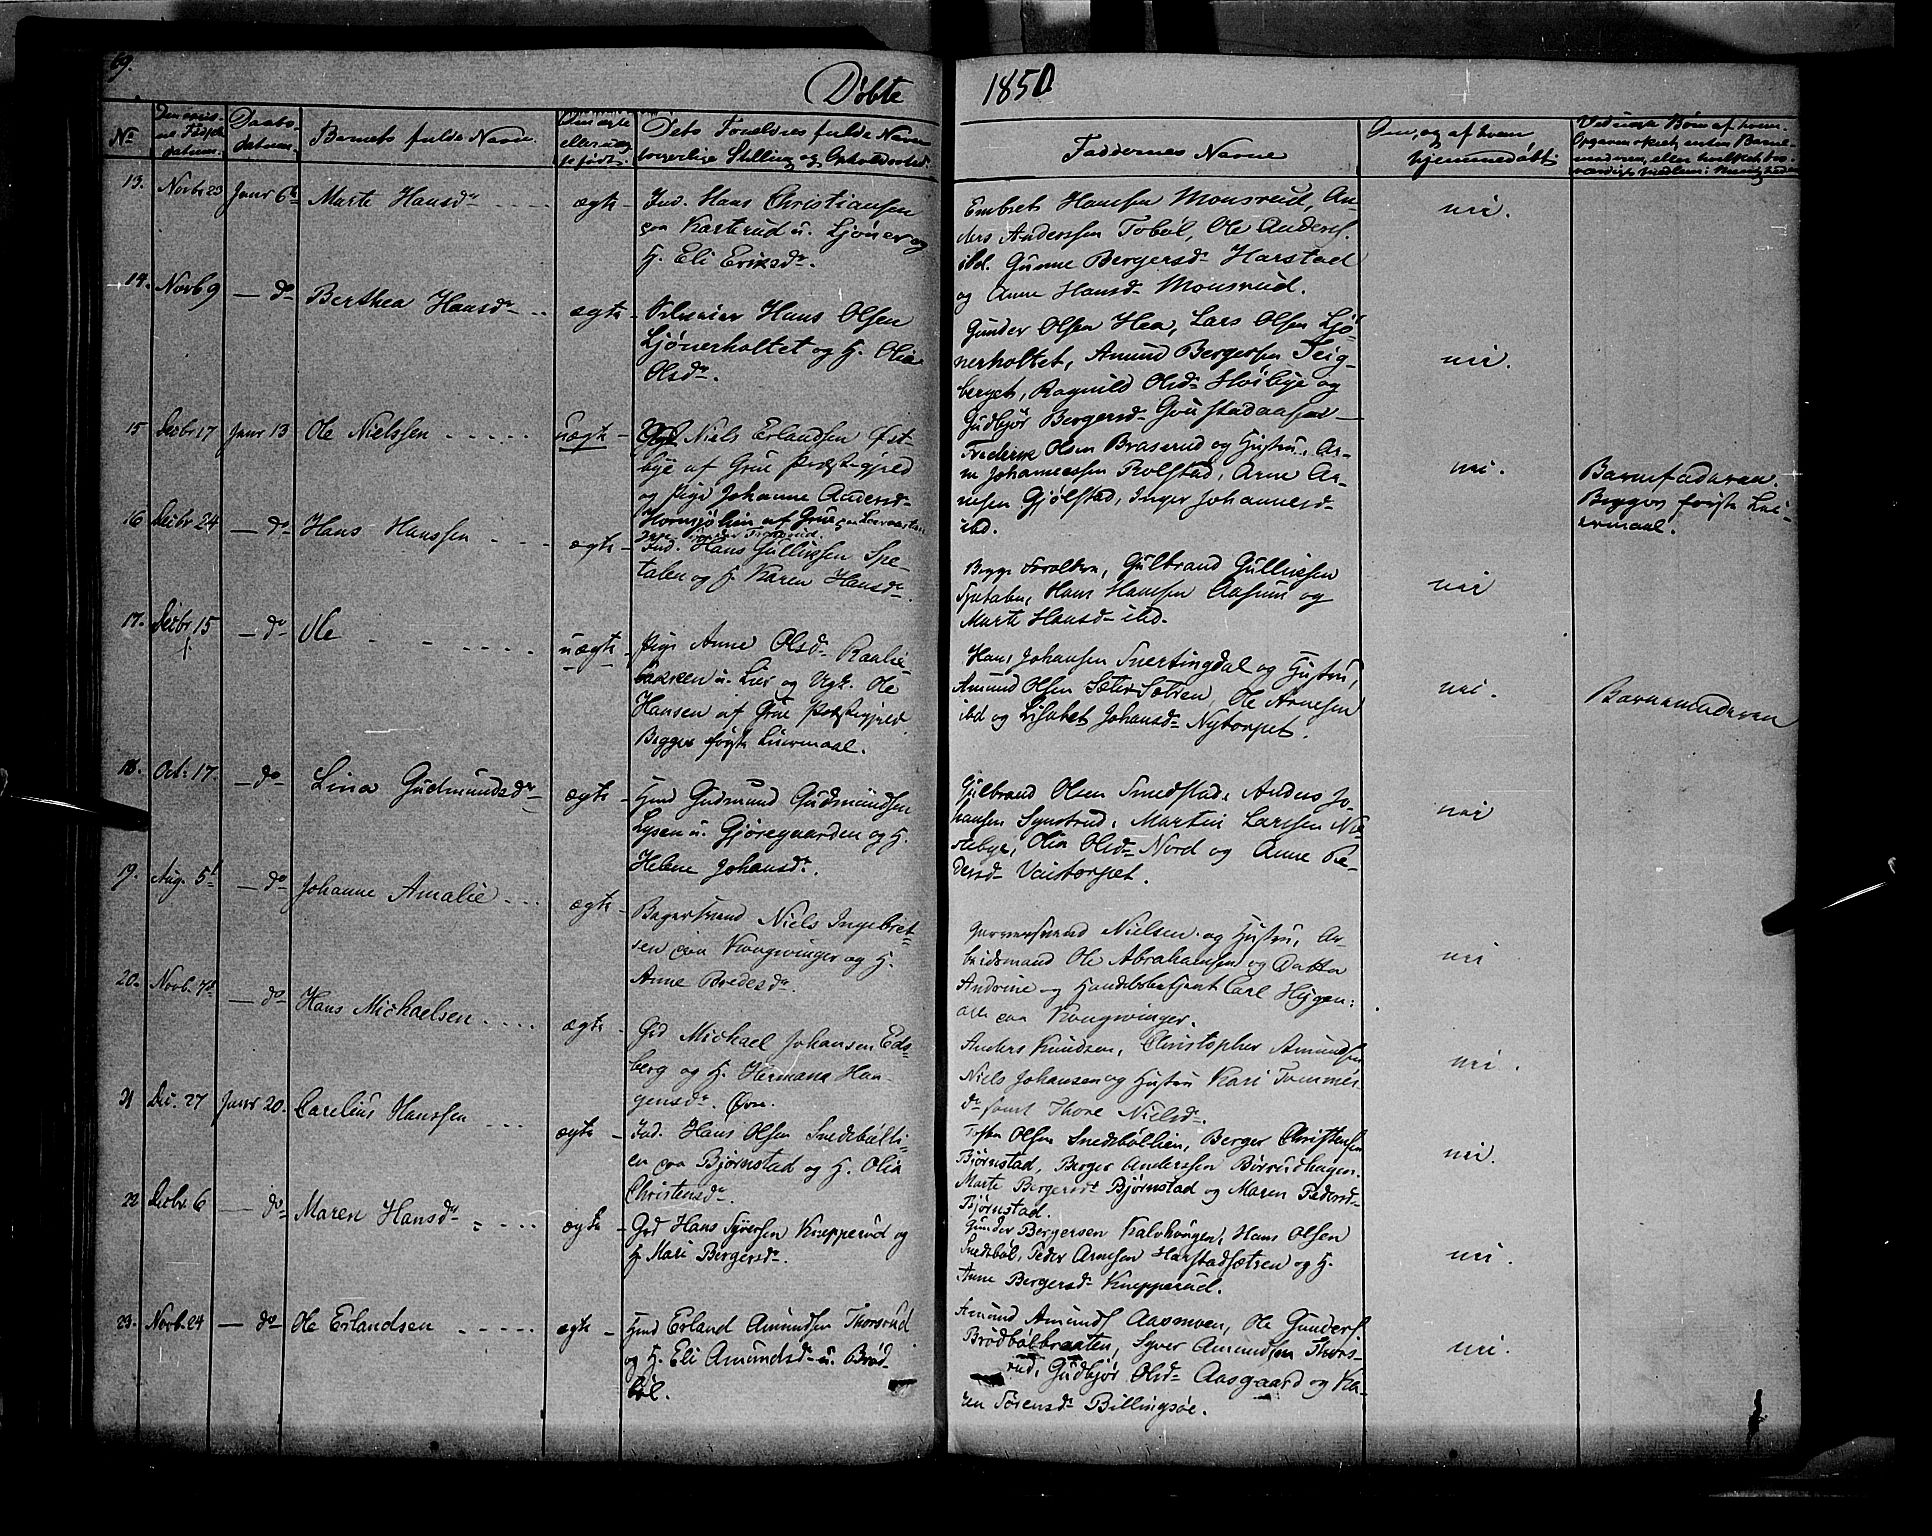 69.
Døbte 1850
No
Daabs-
datum.
Barnets fulde Navn.
Dets Forældres fulde Navn
borgerlige Stilling og Opholdssted.
Faddernes Navne
Om, og af hvem
hjemmedøbt
13. Novbr 23 Janr 6te Marte Hansdr ægte
Ind. Hans Christiansen
paa Kasterud u. Ljøner og
H. Eli Eriksdr.
Embret Hansen Monsrud, An-
ders Anderssen Tobøl, Ole Anders.
ibd. Gunne Bergersdr Harstad
og Anne Hansdr Monsrud.
nei.
14. Novb 9 — do Berthea Hansdr ægte
Hans Olsen
Ljønerholtet og H. Olia
Olsdr.
Gunder Olsen Hea, Lars Olsen Ljø-
nerholtet, Amund Bergersen Teig-
berget, Ragnild Olsdr Høibye og
Gudbjør Bergersdr Goustadaasen
nei.
15 Decbr 17 Janr 13 Ole Nielssen uægte
Niels Erlandsen Øst-
bye af Grue Præstegjeld
og Pige Johanne Andersdr
Frederik Olsen Braserud og Hustru, Ar-
ne Johannessen Rolstad, Arne Ar-
nesen Gjølstad, Inger Johannesdr
ibd.
nei.
Barnefaderen.
Begges første Lei-
ermaal.
16 Decbr 24 — do Hans Hanssen ægte
Ind. Hans Gulliksen Spe-
talen og H. Karen Hansdr.
Begge Forældre, Gulbrand Gulliksen
Spetalen, Hans Hansen Aasum og
Marte Hansdr ibd.
nei
17. Decbr 15 — do Ole uægte
Pige Anne Olsdr Raalie-
bakken u. Lier og Ugk. Ole
Hansen af Grue Præstegjeld
Begges første Leiermaal.
Hans Johansen Snertingdal og Hustru,
Amund Olsen Sætersætren, Ole Arnesen
ibd og Lisabet Johansdr Nytorpet.
nei.
Barnemoderen
18. Oct. 17. — do Lina Gudmundsdr ægte
Hmd Gudmund Gudmundsen
Lysen u. Gjøregaarden og H.
Helene Johansdr.
Gulbrand Olsen Smedstad, Anders Jo-
hansen Synstrud, Martin Larssen Ne-
stebye, Olia Olsdr Nord og Anne Pe-
dersdr Vaistorpet.
nei
19. Aug. 5t — do Johanne Amalie ægte
Bagersvend Niels Ingebret-
sen paa Kongvinger og H.
Anne Bredesdr.
Nielsen og Hustru, Ar-
beidsmand Ole Abrahamsen og Datter
Andrine og Handelsbetjent Carl Heigen:
alle paa Kongvinger.
nei
20. Novb. 7de — do Hans Michaelsen ægte
Grd Michael Johansen Eds-
berg og H. Hermana Hau-
gensdr. Øvre.
Anders Knudsen, Christopher Amundsen
Niels Johansen og Hustru Kari Tommes-
dr samt Thore Nielsdr.
nei.
21 Dec. 27 Janr 20. Carelius Hanssen ægte
Ind. Hans Olsen Snedsbølli-
en paa Bjørnstad og H. Olia
Christensdr.
Olsen Snedsbøllien, Berger Christensen
Bjørnstad, Berger Anderssen Børrudhagen.
Marte Bergersdr Bjørnstad og Maren Pedersdr
Bjørnstad.
nei.
22 Decbr 6 — do Maren Hansdr ægte
Grd Hans Syversen Knepperud og
H. Mari Bergersdr.
Gunder Bergersen Kalvhougen, Hans Olsen
Snedsbøl, Peder Arnesen Harstadsætren og H.
Anne Bergersdr Knepperud.
nei.
23. Novb. 24 — do Ole Erlandsen ægte
Hmd Erland Amundsen Thorsrud
og H. Eli Amundsdr u. Brød-
bøl.
Amund Amunds Aasmoen, Ole Gunders.
Brødbølbraaten, Syver Amundsen Thors-
rud, Gudbjør Olsdr Aasgaard og Ka-
ren Sørensdr Billingsøe.
nei.